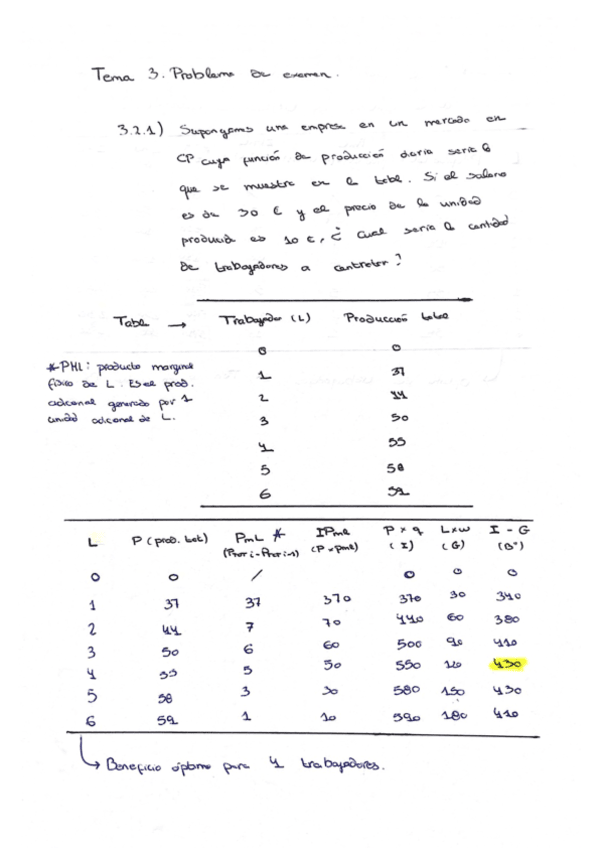 Tema 3. Problema de examen.
3.2.1) Supongamos una empresa en un mercado en
CP cuya función de producción diaria sería la
que se muestra en la tabla. Si el salario
es de 30 € y el precio de la unidad
producida es 10 €, ¿ cual sería la cantidad
de trabajadores a contratar?
Tabla → Trabajador (L) Producción total
0 0
1 37
2 44
3 50
4 55
5 58
6 59
* PML: producto marginal
físico de L. Es el prod.
adicional generado por 1
unidad adicional de L.
L P (prod. tot) PmL * IPmL P x q Lxw I - G
(Prot i - Prot i-1) (P x pmL) (I) (G) (Bº)
0 0 / 0 0 0
1 37 37 370 370 30 340
2 44 7 70 440 60 380
3 50 6 60 500 90 410
4 55 5 50 550 120 430
5 58 3 30 580 150 430
6 59 1 10 590 180 410
↳ Beneficio óptimo para 4 trabajadores.